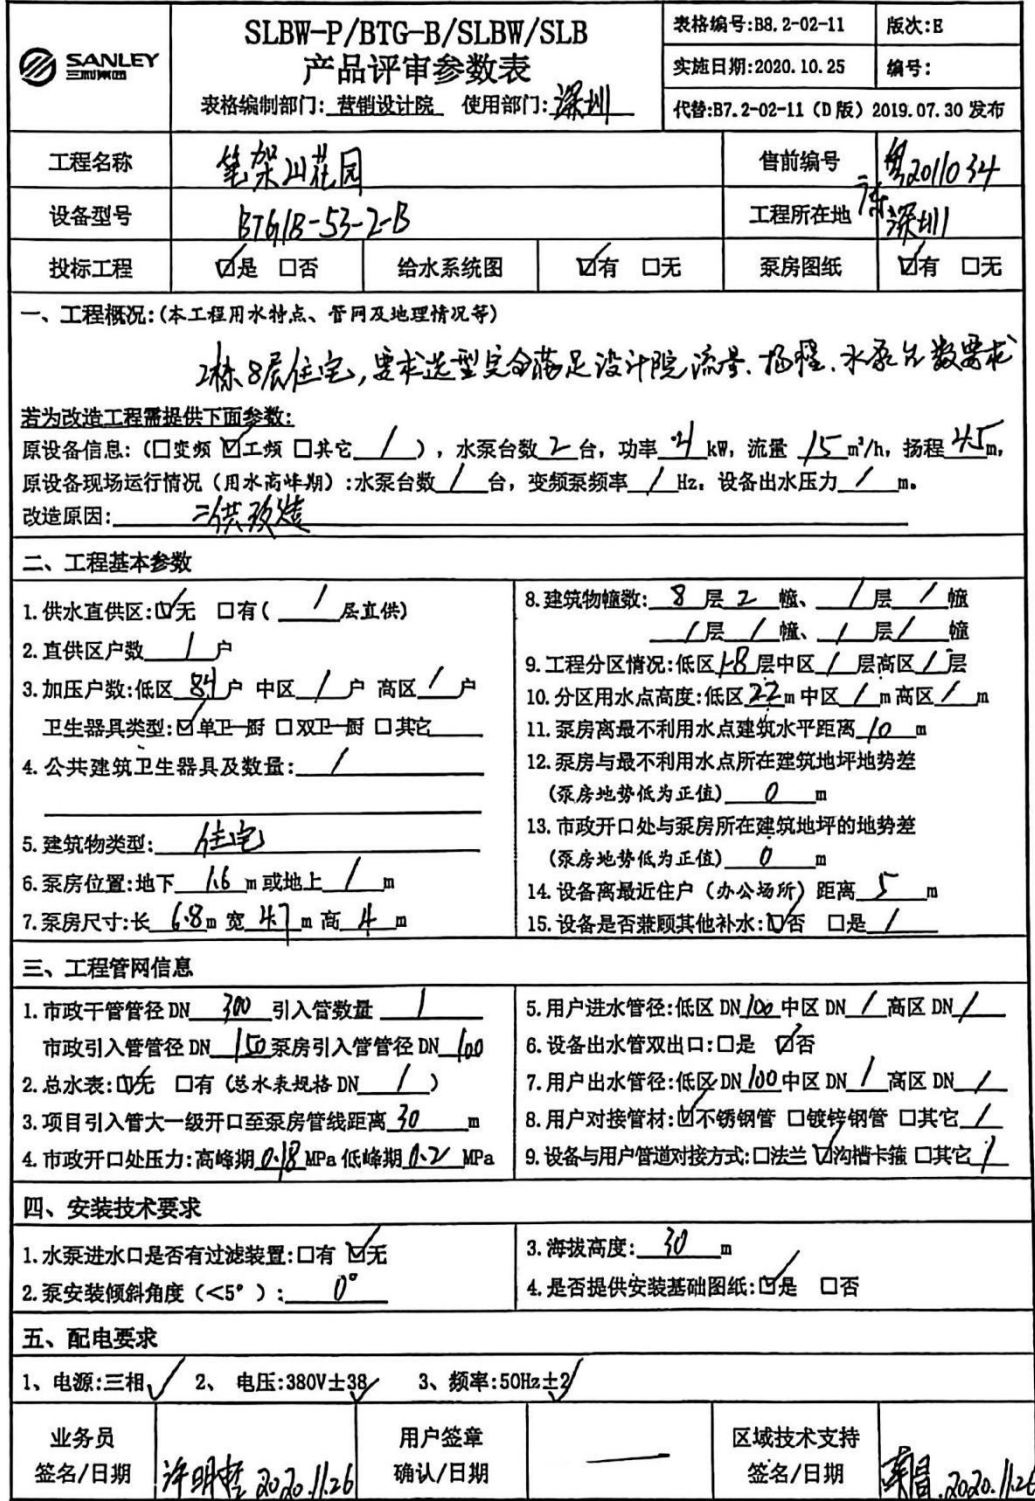 SANLEY
三利集团
SLBW-P/BTG-B/SLBW/SLB
产品评审参数表
表格编制部门: 营销设计院 使用部门: 深圳
表格编号:B8.2-02-11 版次:E
实施日期:2020.10.25 编号:
代替:B7.2-02-11 (D版) 2019.07.30 发布
工程名称 笔架山花园 售前编号 粤2011034
设备型号 BTG18-53-2-B 工程所在地 广东深圳
投标工程 ☑是 □否 给水系统图 ☑有 □无 泵房图纸 ☑有 □无
一、工程概况:(本工程用水特点、管网及地理情况等)
2栋8层住宅,要求选型完全满足设计院流量、扬程、水泵台数要求
若为改造工程需提供下面参数:
原设备信息:(□变频 ☑工频 □其它 / ),水泵台数 2 台,功率 4 kW,流量 15 m³/h,扬程 45 m,
原设备现场运行情况(用水高峰期):水泵台数 / 台,变频泵频率 / Hz。设备出水压力 / m。
改造原因: 二供改造
二、工程基本参数
1.供水直供区:☑无 □有( / 层直供)
2.直供区户数 / 户
3.加压户数:低区 84 户 中区 / 户 高区 / 户
卫生器具类型:☑单卫一厨 □双卫一厨 □其它
4.公共建筑卫生器具及数量: /
5.建筑物类型: 住宅
6.泵房位置:地下 1.6 m或地上 / m
7.泵房尺寸:长 6.8 m 宽 4.7 m 高 4 m
8.建筑物幢数: 8 层 2 幢、 / 层 / 幢
/ 层 / 幢、 / 层 / 幢
9.工程分区情况:低区 1-8 层中区 / 层高区 / 层
10.分区用水点高度:低区 22 m中区 / m高区 / m
11.泵房离最不利用水点建筑水平距离 10 m
12.泵房与最不利用水点所在建筑地坪地势差
(泵房地势低为正值) 0 m
13.市政开口处与泵房所在建筑地坪的地势差
(泵房地势低为正值) 0 m
14.设备离最近住户(办公场所)距离 5 m
15.设备是否兼顾其他补水:☑否 □是 /
三、工程管网信息
1.市政干管管径 DN 300 引入管数量 1
市政引入管管径 DN 150 泵房引入管管径 DN 100
2.总水表:☑无 □有(总水表规格 DN / )
3.项目引入管大一级开口至泵房管线距离 30 m
4.市政开口处压力:高峰期 0.18 MPa 低峰期 0.2 MPa
5.用户进水管径:低区 DN 100 中区 DN / 高区 DN /
6.设备出水管双出口:□是 ☑否
7.用户出水管径:低区 DN 100 中区 DN / 高区 DN /
8.用户对接管材:☑不锈钢管 □镀锌钢管 □其它 /
9.设备与用户管道对接方式:□法兰 ☑沟槽卡箍 □其它 /
四、安装技术要求
1.水泵进水口是否有过滤装置:□有 ☑无
2.泵安装倾斜角度(<5°): 0°
3.海拔高度: 30 m
4.是否提供安装基础图纸:☑是 □否
五、配电要求
1、电源:三相✓ 2、 电压:380V±38✓ 3、频率:50Hz±2✓
业务员
签名/日期 许明哲 2020.11.26
用户签章
确认/日期 —
区域技术支持
签名/日期 2020.11.26